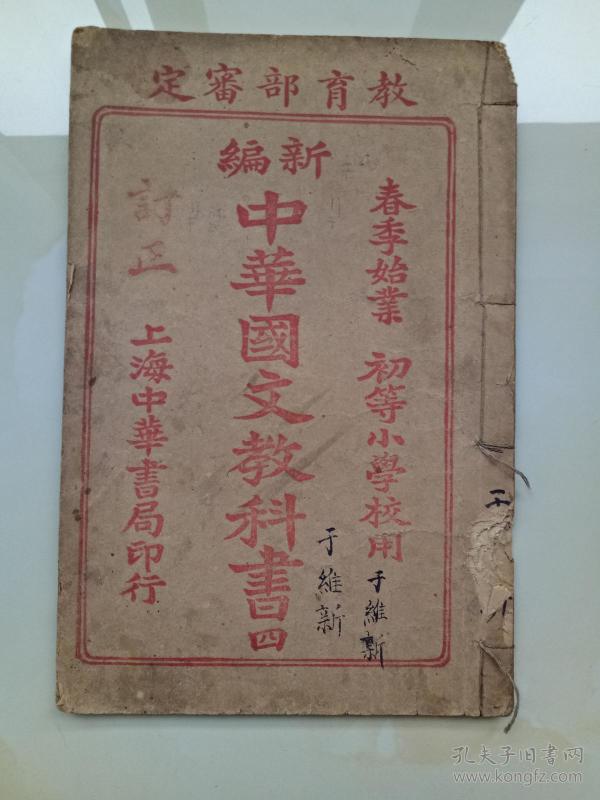 教育部審定
新編
春季始業 初等小學校用
中華國文教科書四
訂正
上海中華書局印行
于維新
于維新
孔夫子旧书网
www.kongfz.com